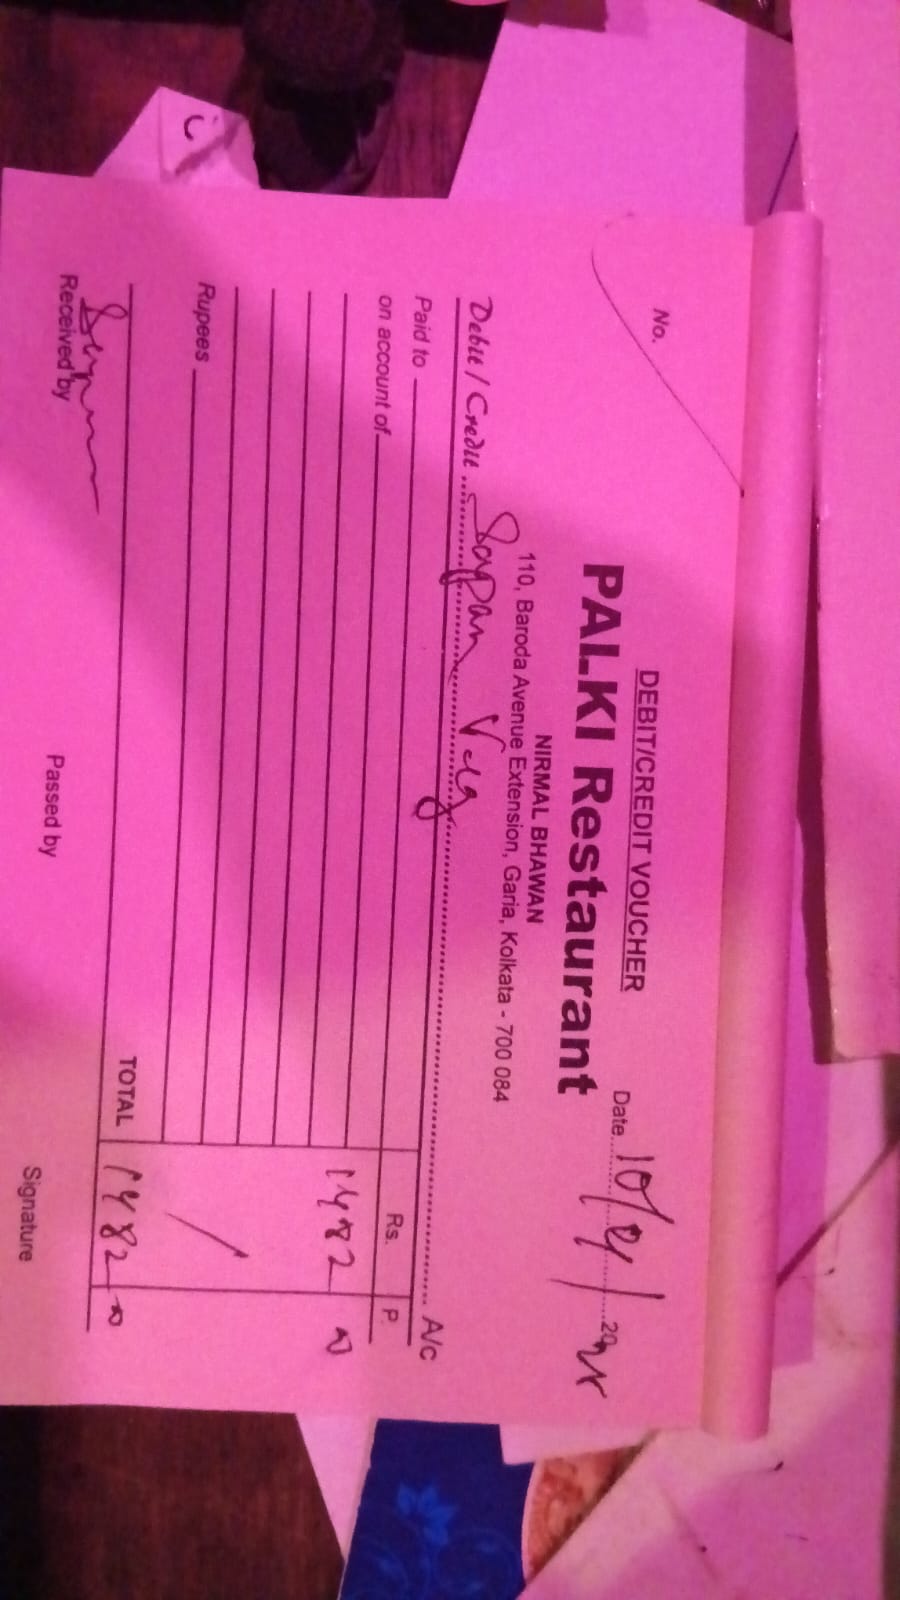 DEBIT/CREDIT VOUCHER
No.
Date 10/4/20
PALKI Restaurant
NIRMAL BHAWAN
110, Baroda Avenue Extension, Garia, Kolkata - 700 084
Debit / Credit Sapan Veg A/c
Paid to
on account of
Rs. P.
1482
Rupees
TOTAL 1482
Received by
Passed by
Signature